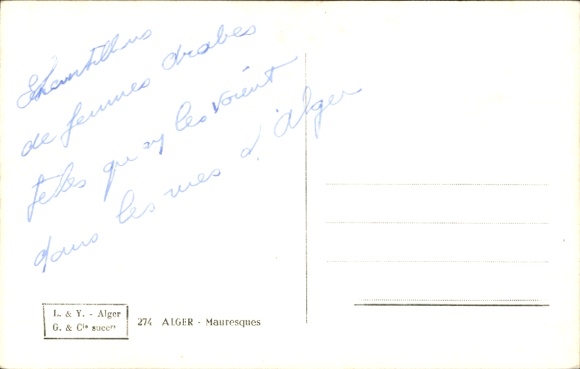 Échantillons
de femmes arabes
telles qu'on les voient
dans les rues d'Alger
L. & Y. - Alger
G. & Cie succrs
274 ALGER - Mauresques